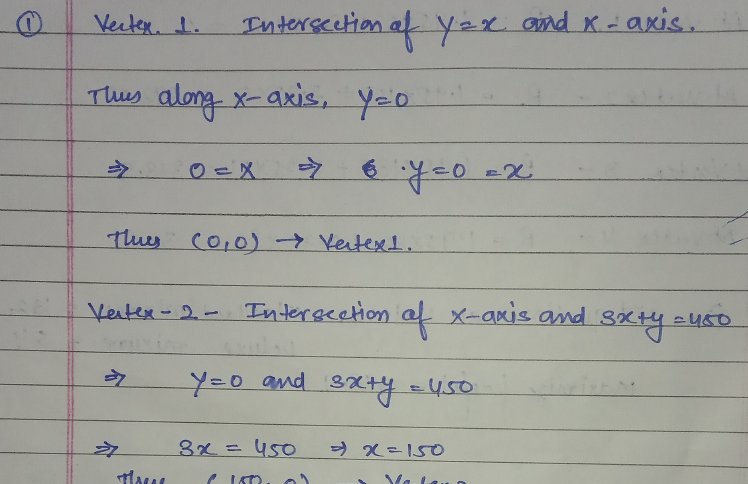 ① Vertex. 1. Intersection of y=x and x-axis.
Thus along x-axis, y=0
⇒ 0=x ⇒ y=0 =x
Thus (0,0) → Vertex1.
Vertex-2- Intersection of x-axis and 3x+y=450
⇒ y=0 and 3x+y=450
⇒ 3x = 450 ⇒ x=150
Thus (150, 0) →